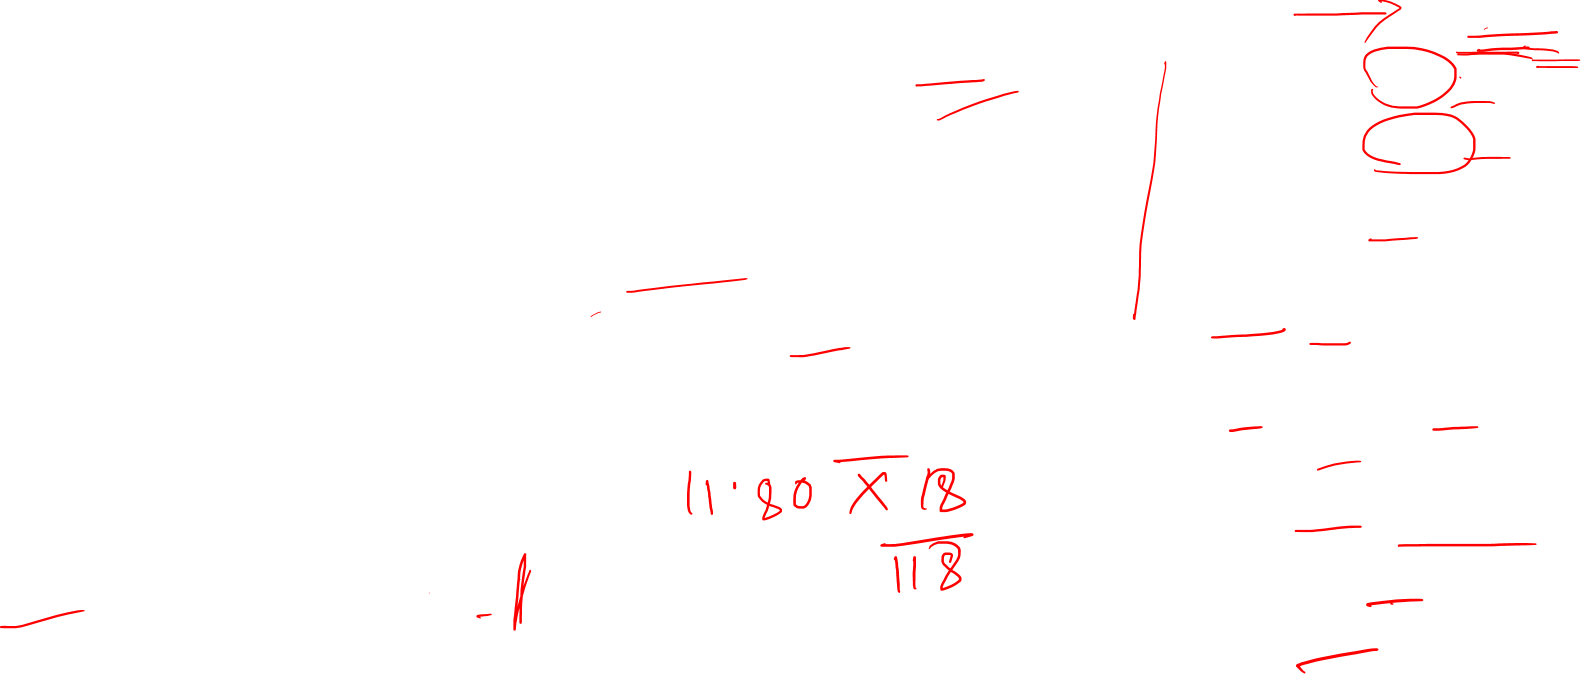 11.80 X 18
118